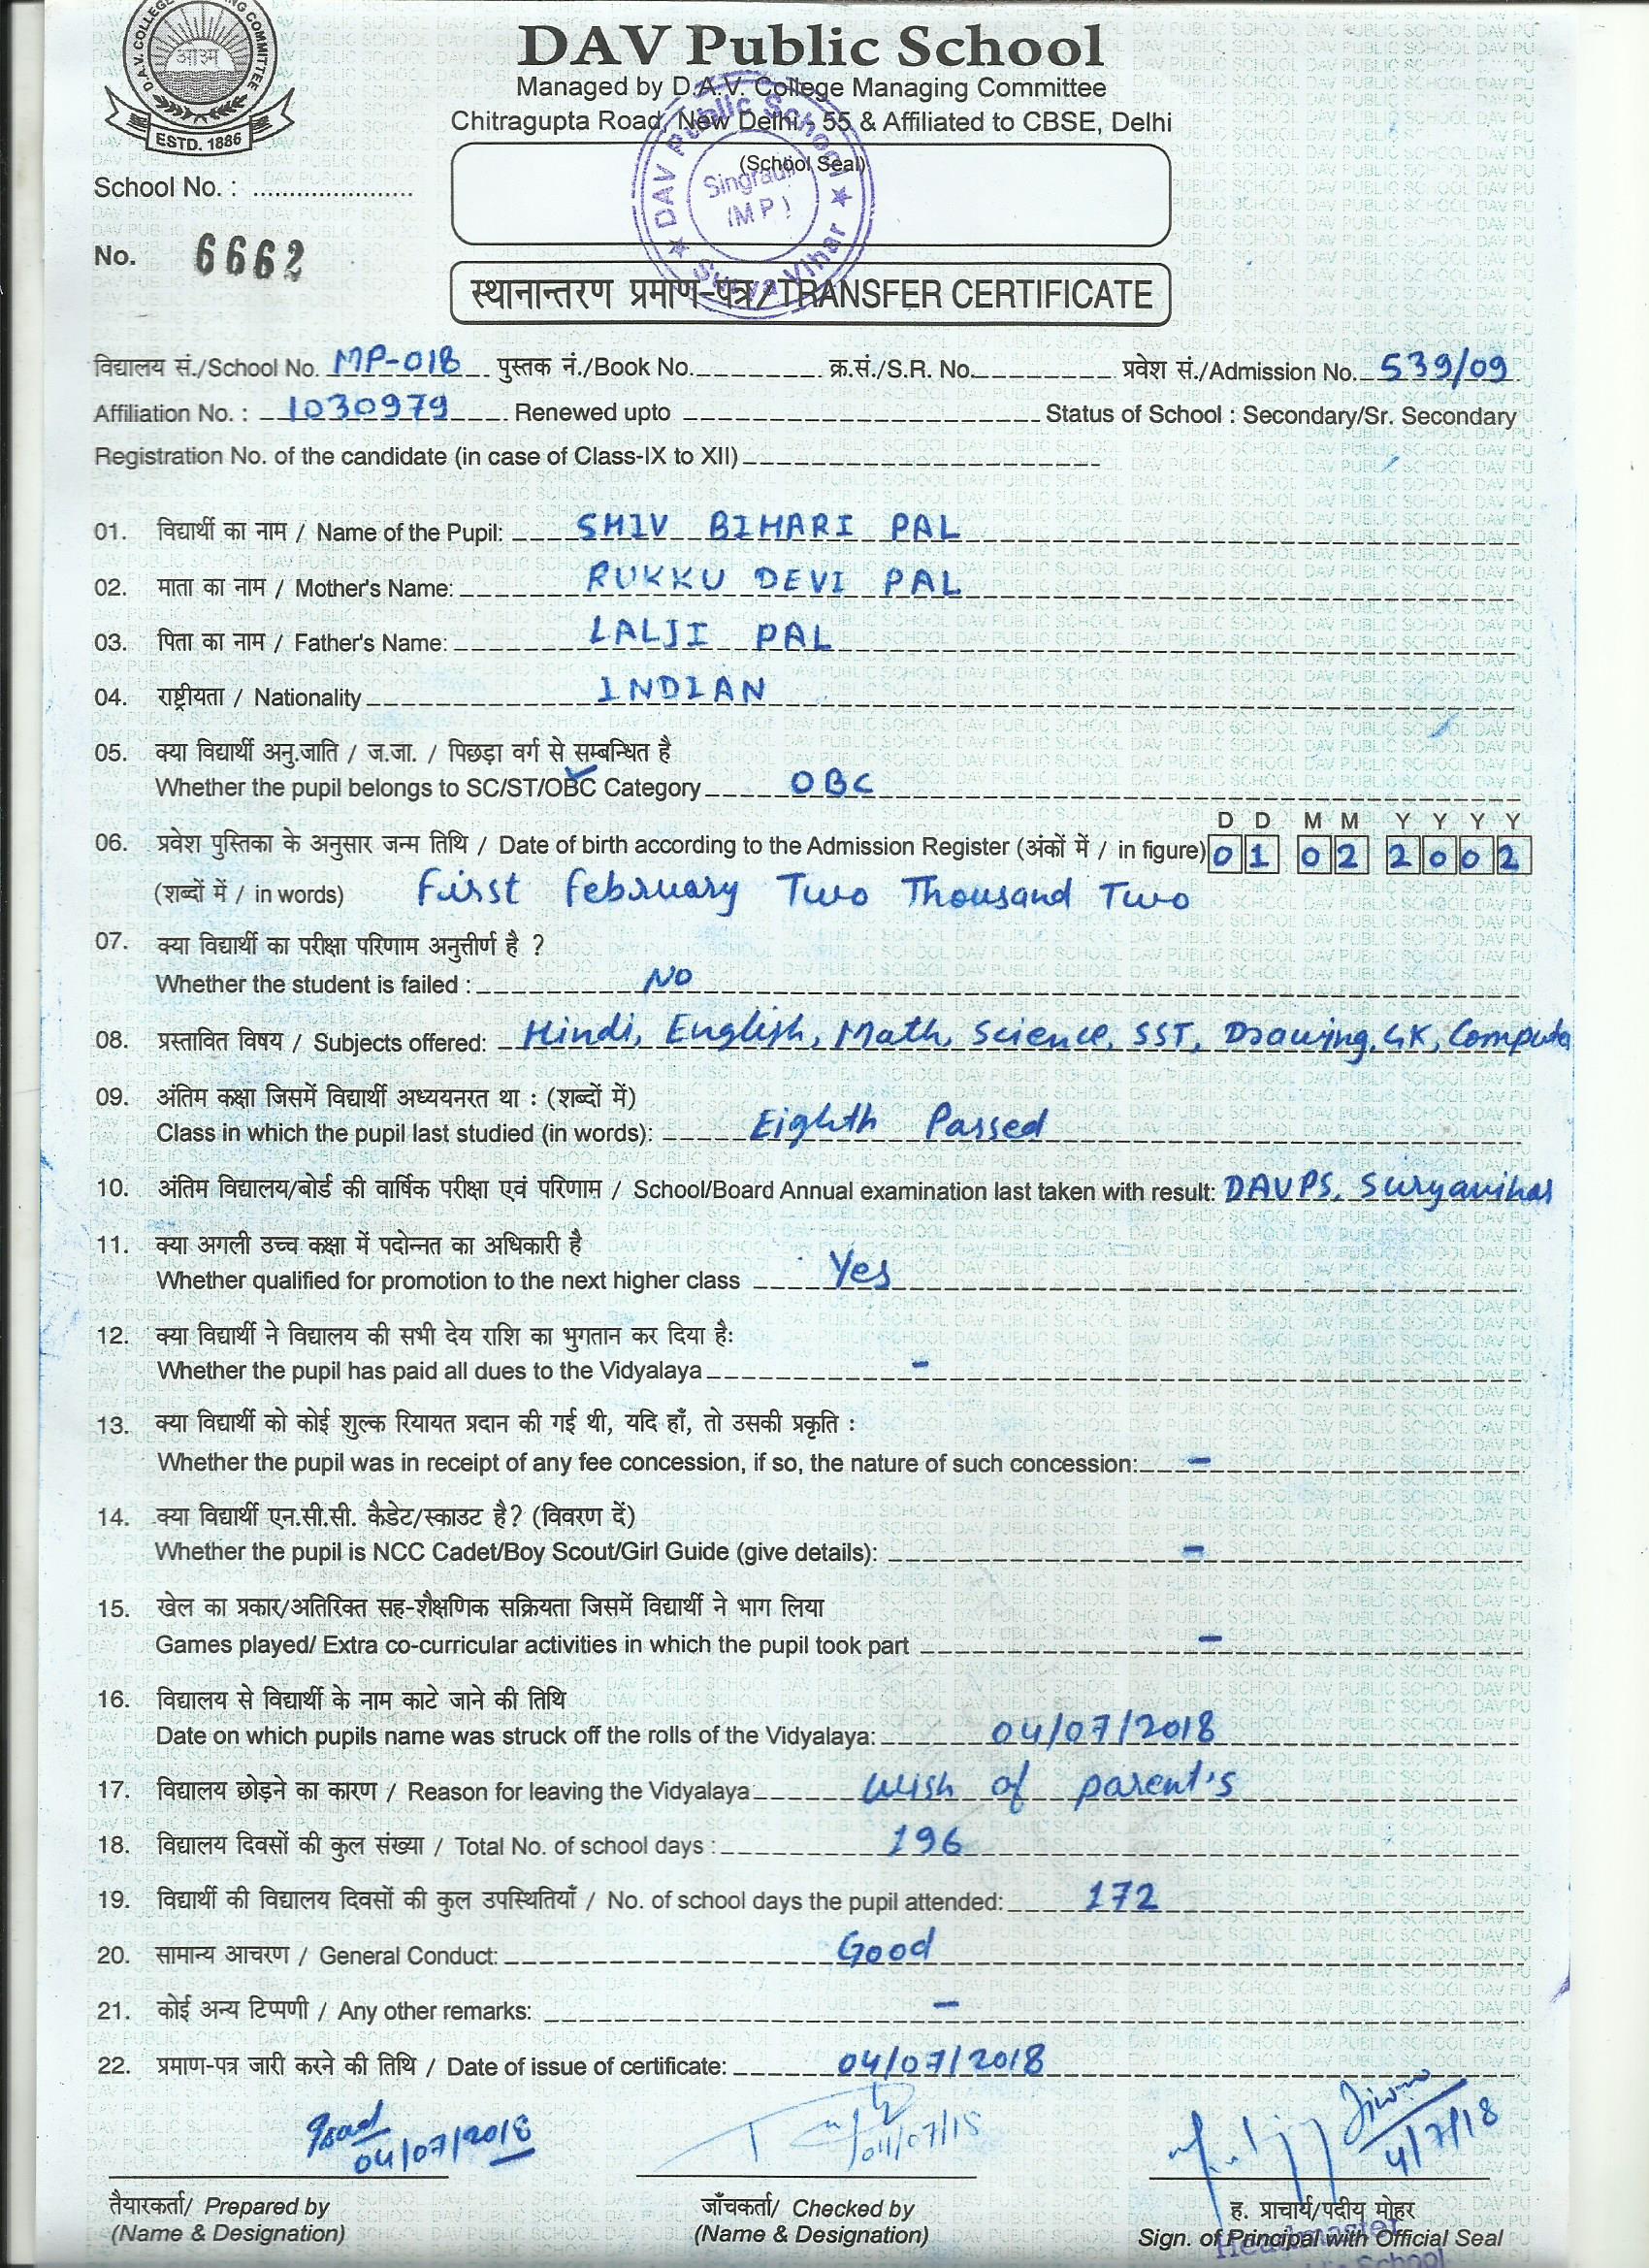 D.A.V. COLLEGE MANAGING COMMITTEE
ओ३म्
ESTD. 1886
DAV Public School
Managed by D.A.V. College Managing Committee
Chitragupta Road, New Delhi - 55 & Affiliated to CBSE, Delhi
(School Seal)
DAV Public School ★ Surya Vihar ★
Singrauli
(M P)
School No. : .....................
No. 6662
स्थानान्तरण प्रमाण-पत्र/TRANSFER CERTIFICATE
विद्यालय सं./School No. MP-018 पुस्तक नं./Book No. क्र.सं./S.R. No. प्रवेश सं./Admission No. 539/09
Affiliation No. : 1030979 Renewed upto Status of School : Secondary/Sr. Secondary
Registration No. of the candidate (in case of Class-IX to XII)
01. विद्यार्थी का नाम / Name of the Pupil: SHIV BIHARI PAL
02. माता का नाम / Mother's Name: RUKKU DEVI PAL
03. पिता का नाम / Father's Name: LALJI PAL
04. राष्ट्रीयता / Nationality INDIAN
05. क्या विद्यार्थी अनु.जाति / ज.जा. / पिछड़ा वर्ग से सम्बन्धित है
Whether the pupil belongs to SC/ST/OBC Category OBC
D D M M Y Y Y Y
06. प्रवेश पुस्तिका के अनुसार जन्म तिथि / Date of birth according to the Admission Register (अंकों में / in figure) 01 02 2002
(शब्दों में / in words) First February Two Thousand Two
07. क्या विद्यार्थी का परीक्षा परिणाम अनुत्तीर्ण है ?
Whether the student is failed : NO
08. प्रस्तावित विषय / Subjects offered: Hindi, English, Math, Science, SST, Drawing, GK, Computer
09. अंतिम कक्षा जिसमें विद्यार्थी अध्ययनरत था : (शब्दों में)
Class in which the pupil last studied (in words): Eighth Passed
10. अंतिम विद्यालय/बोर्ड की वार्षिक परीक्षा एवं परिणाम / School/Board Annual examination last taken with result: DAVPS, Suryavihar
11. क्या अगली उच्च कक्षा में पदोन्नत का अधिकारी है
Whether qualified for promotion to the next higher class Yes
12. क्या विद्यार्थी ने विद्यालय की सभी देय राशि का भुगतान कर दिया है:
Whether the pupil has paid all dues to the Vidyalaya -
13. क्या विद्यार्थी को कोई शुल्क रियायत प्रदान की गई थी, यदि हाँ, तो उसकी प्रकृति :
Whether the pupil was in receipt of any fee concession, if so, the nature of such concession: -
14. क्या विद्यार्थी एन.सी.सी. कैडेट/स्काउट है? (विवरण दें)
Whether the pupil is NCC Cadet/Boy Scout/Girl Guide (give details): -
15. खेल का प्रकार/अतिरिक्त सह-शैक्षणिक सक्रियता जिसमें विद्यार्थी ने भाग लिया
Games played/ Extra co-curricular activities in which the pupil took part -
16. विद्यालय से विद्यार्थी के नाम काटे जाने की तिथि
Date on which pupils name was struck off the rolls of the Vidyalaya: 04/07/2018
17. विद्यालय छोड़ने का कारण / Reason for leaving the Vidyalaya wish of parent's
18. विद्यालय दिवसों की कुल संख्या / Total No. of school days : 196
19. विद्यार्थी की विद्यालय दिवसों की कुल उपस्थितियाँ / No. of school days the pupil attended: 172
20. सामान्य आचरण / General Conduct: Good
21. कोई अन्य टिप्पणी / Any other remarks: -
22. प्रमाण-पत्र जारी करने की तिथि / Date of issue of certificate: 04/07/2018
04/07/2018 04/07/18 4/7/18
तैयारकर्ता/ Prepared by जाँचकर्ता/ Checked by ह. प्राचार्य/पदीय मोहर
(Name & Designation) (Name & Designation) Sign. of Principal with Official Seal
Headmaster
School